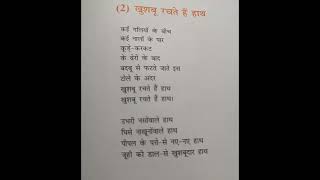 (2) खुशबू रचते हैं हाथ
कई गलियों के बीच
कई नालों के पार
कूड़े-करकट
के ढेरों के बाद
बदबू से फटते जाते इस
टोले के अंदर
खुशबू रचते हैं हाथ
खुशबू रचते हैं हाथ।
उभरी नसोंवाले हाथ
घिसे नाखूनोंवाले हाथ
पीपल के पत्ते-से नए-नए हाथ
जूही की डाल-से खुशबूदार हाथ